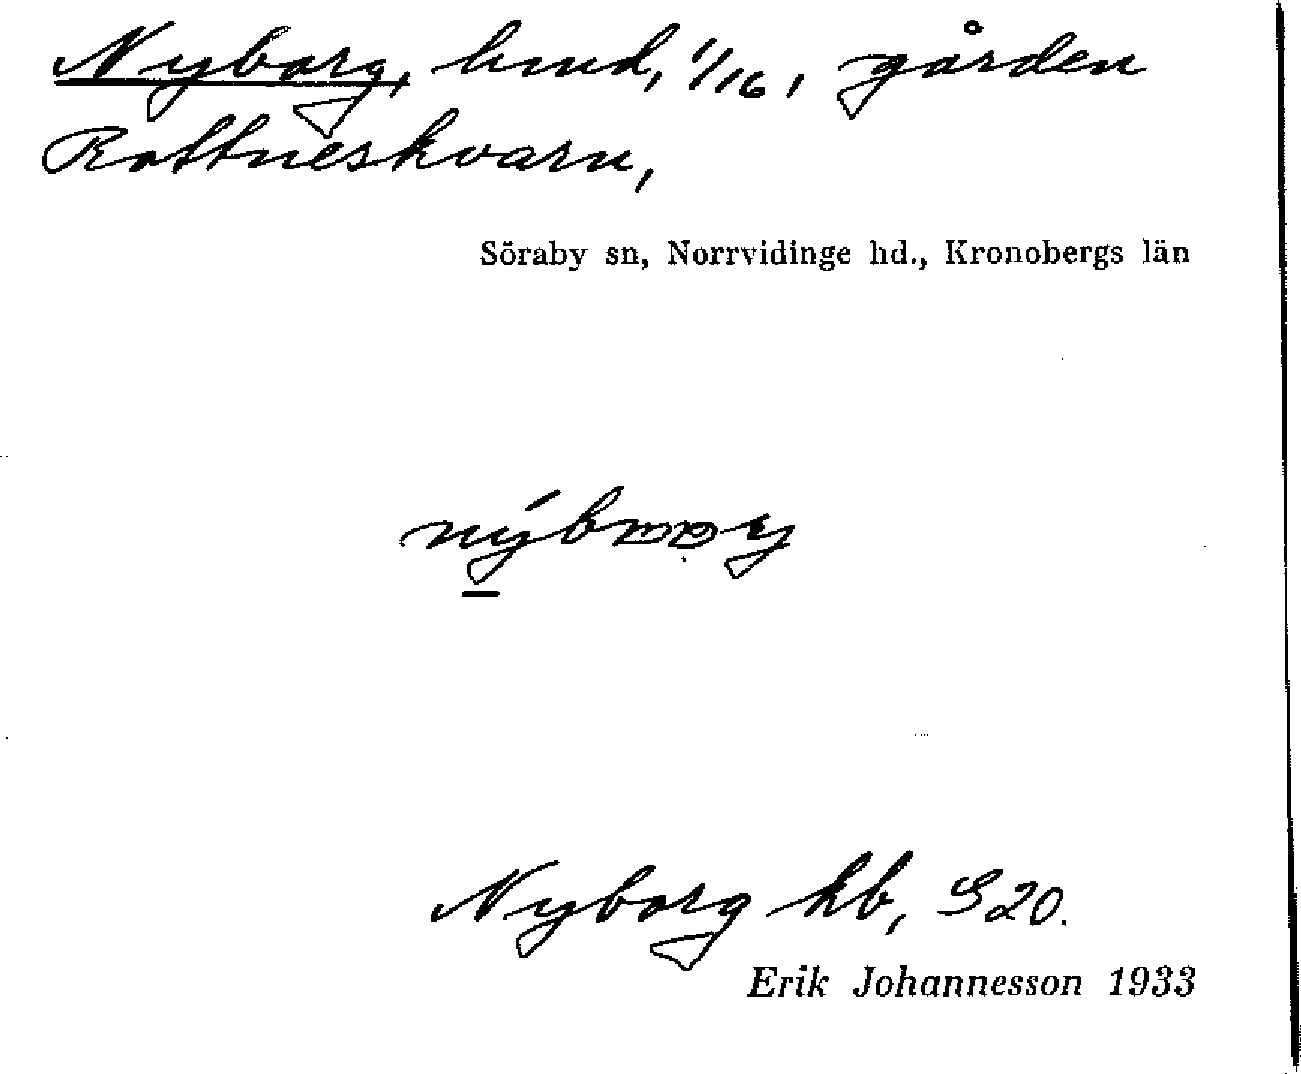 Nyborg, hmd, 1/16, gården
Rottneskvarn,
Söraby sn, Norrvidinge hd., Kronobergs län
Nyborg kb, S20.
Erik Johannesson 1933